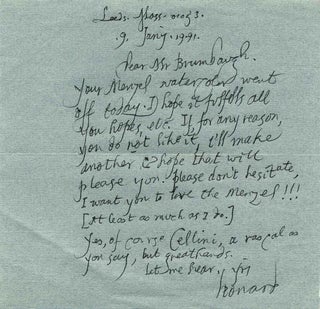 Leeds. Mass. 01053.
.9. Jan'y. 1991.
Dear Mr Brumbaugh.
Your Menzel watercolor went
off today. I hope it fulfills all
you hopes, etc. If, for any reason,
you do not like it, I'll make
another & hope that will
please you. Please don't hesitate,
I want you to love the Menzel!!!
[At least as much as I do.]
Yes, of corse Cellini, a rascal as
you say, but great hands.
let me hear,
Leonard